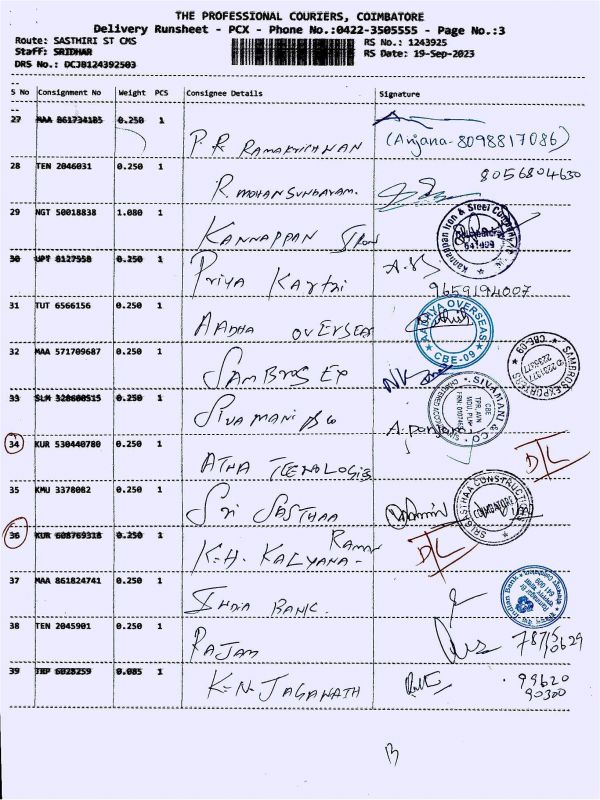 THE PROFESSIONAL COURIERS, COIMBATORE
Delivery Runsheet - PCX - Phone No.:0422-3505555 - Page No.:3
Route: SASTHIRI ST CMS RS No.: 1243925
Staff: SRIDHAR RS Date: 19-Sep-2023
DRS No.: DCJB124392503
S No Consignment No Weight PCS Consignee Details Signature
27 MAA 861734185 0.250 1
P. R RAMAKRISHNAN (Anjana-8098817086)
28 TEN 2046031 0.250 1 8056804630
R. MOHAN SUNDARAM.
29 NGT 50018838 1.080 1
KANNAPPAN IRON Kannappan Iron & Steel Company
30 UPT 8127558 0.250 1
PRIYA 9659194007
31 TUT 6566156 0.250 1
AADHA OVERSEAS OVERSEAS CBE-09
32 MAA 571709687 0.250 1
SAMBROS EX SAMBROS EXPORTERS CBE-09
33 SLM 328600515 0.250 1
SIVAMANI & Co SIVAMANI & CO.
34 KUR 530440780 0.250 1
D/L
35 KMU 3378082 0.250 1
SRI SASTHAA SRI SASTHAA CONSTRUCTIONS COIMBATORE
36 KUR 608769318 0.250 1
K.H. KALYANA- RAMAN D/L
37 MAA 861824741 0.250 1
INDIA BANK. Indian Bank
38 TEN 2045901 0.250 1
RAJAM
39 TRP 6028259 0.085 1
K-N-JAGANATH 99620
90300